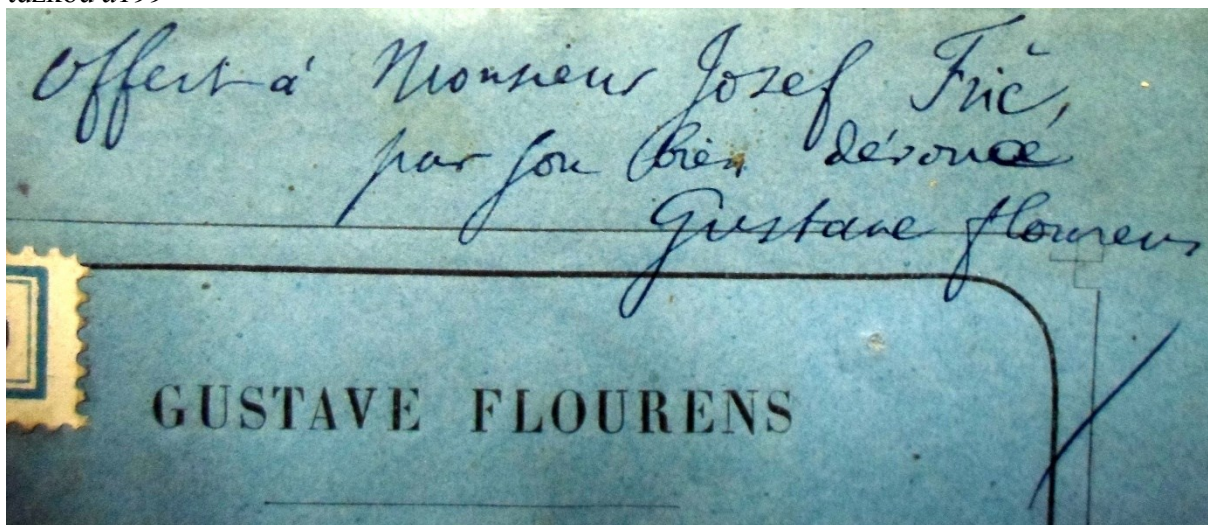 Offert à Monsieur Josef Frič,
par son bien dévoué
Gustave Flourens
GUSTAVE FLOURENS